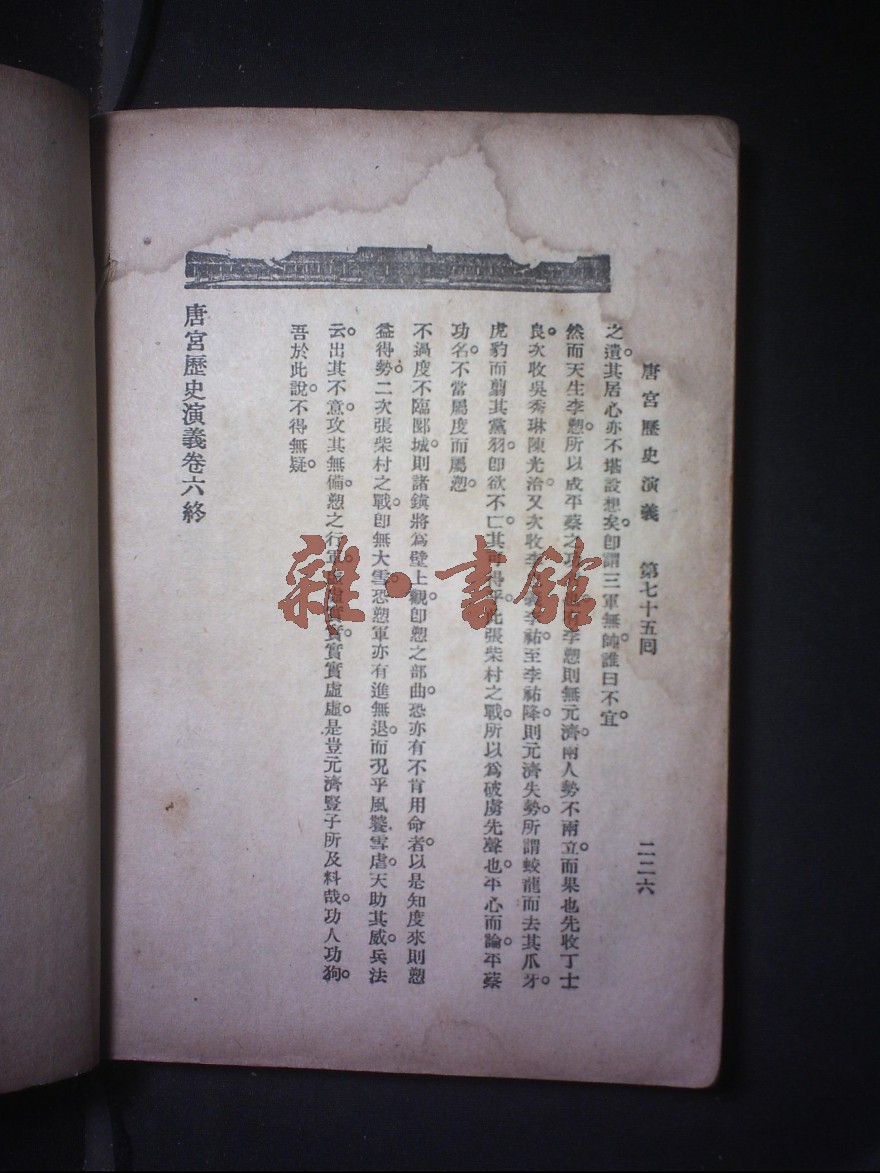 唐宮歷史演義 第七十五囘 二二六
之遺。其居心亦不堪設想矣。卽謂三軍無帥。誰曰不宜。
然而天生李愬。所以成平蔡之功。李愬則無元濟。兩人勢不兩立。而果也先收丁士
良。次收吳秀琳陳光洽。又次收李李祐。至李祐降。則元濟失勢。所謂蛟龍而去其爪牙。
虎豹而翦其黨羽。卽欲不亡。其可得乎。此張柴村之戰。所以爲破虜先聲也。平心而論。平蔡
功名。不當屬度而屬愬。
不過度不臨郾城。則諸鎭將爲壁上觀。卽愬之部曲。恐亦有不肯用命者。以是知度來則愬
益得勢。二次張柴村之戰。卽無大雪。恐愬軍亦有進無退。而况乎風饕雪虐。天助其威。兵法
云。出其不意。攻其無備。愬之行軍。虛虛實實。實實虛虛。是豈元濟豎子所及料哉。功人功狗。
吾於此說。不得無疑。
唐宮歷史演義卷六終
雜·書館